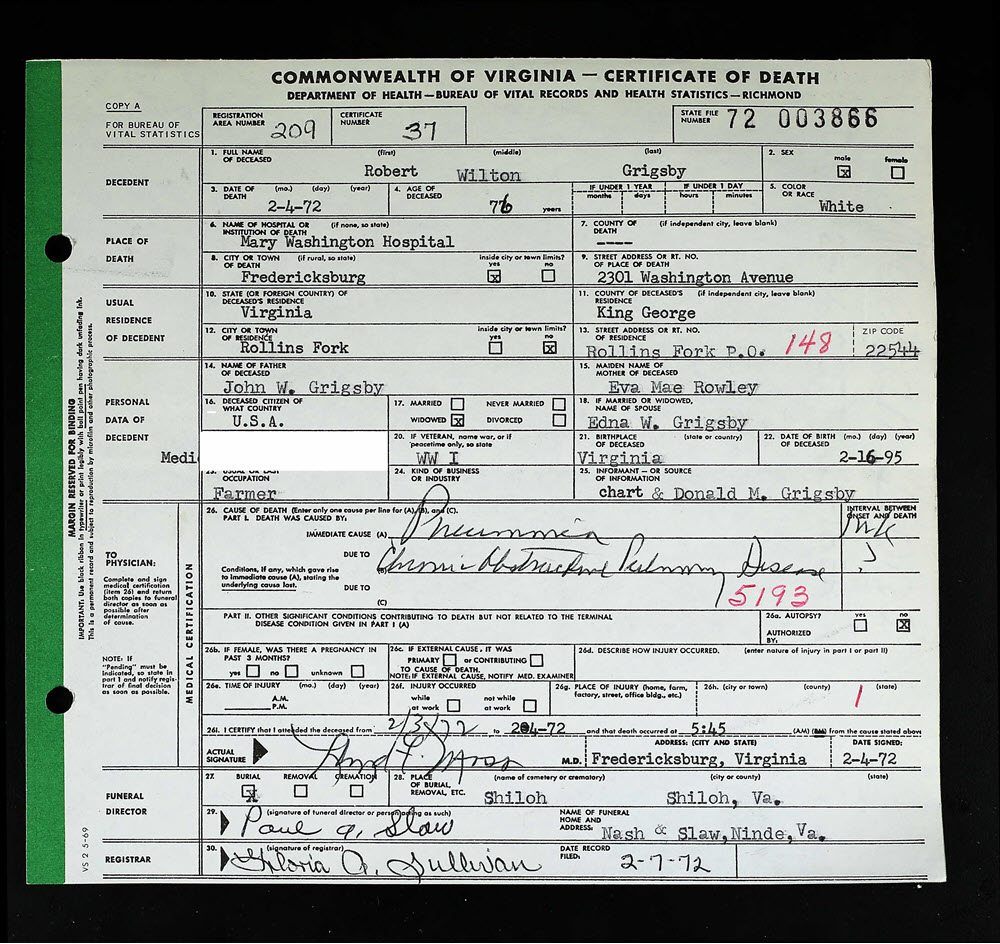 COMMONWEALTH OF VIRGINIA — CERTIFICATE OF DEATH
DEPARTMENT OF HEALTH—BUREAU OF VITAL RECORDS AND HEALTH STATISTICS—RICHMOND
COPY A
FOR BUREAU OF VITAL STATISTICS
REGISTRATION AREA NUMBER 209
CERTIFICATE NUMBER 37
STATE FILE NUMBER 72 003866
DECEDENT
1. FULL NAME OF DECEASED (first) (middle) (last)
Robert Wilton Grigsby
2. SEX male ☒ female ☐
3. DATE OF DEATH (mo.) (day) (year)
2-4-72
4. AGE OF DECEASED
76 years
IF UNDER 1 YEAR months days
IF UNDER 1 DAY hours minutes
5. COLOR OR RACE
White
PLACE OF DEATH
6. NAME OF HOSPITAL OR INSTITUTION OF DEATH (if none, so state)
Mary Washington Hospital
7. COUNTY OF DEATH (if independent city, leave blank)
----
8. CITY OR TOWN OF DEATH (if rural, so state)
Fredericksburg
inside city or town limits? yes ☒ no ☐
9. STREET ADDRESS OR RT. NO. OF PLACE OF DEATH
2301 Washington Avenue
USUAL RESIDENCE OF DECEDENT
10. STATE (OR FOREIGN COUNTRY) OF DECEASED'S RESIDENCE
Virginia
11. COUNTY OF DECEASED'S RESIDENCE (if independent city, leave blank)
King George
12. CITY OR TOWN OF RESIDENCE
Rollins Fork
inside city or town limits? yes ☐ no ☒
13. STREET ADDRESS OR RT. NO. OF RESIDENCE
Rollins Fork P.O. 148
ZIP CODE
22544
PERSONAL DATA OF DECEDENT
14. NAME OF FATHER OF DECEASED
John W. Grigsby
15. MAIDEN NAME OF MOTHER OF DECEASED
Eva Mae Rowley
16. DECEASED CITIZEN OF WHAT COUNTRY
U.S.A.
17. MARRIED ☐ NEVER MARRIED ☐
WIDOWED ☒ DIVORCED ☐
18. IF MARRIED OR WIDOWED, NAME OF SPOUSE
Edna W. Grigsby
Medi
20. IF VETERAN, name war, or if peacetime only, so state
WW I
21. BIRTHPLACE OF DECEASED (state or country)
Virginia
22. DATE OF BIRTH (mo.) (day) (year) OF DECEASED
2-16-95
23. USUAL OR LAST OCCUPATION
Farmer
24. KIND OF BUSINESS OR INDUSTRY
25. INFORMANT — OR SOURCE OF INFORMATION
chart & Donald M. Grigsby
MARGIN RESERVED FOR BINDING
IMPORTANT: Use black ribbon in typewriter or print legibly with ball point pen having dark unfading ink.
This is a permanent record and subject to reproduction by microfilm and other photographic process.
TO PHYSICIAN:
Complete and sign medical certification (item 26) and return both copies to funeral director as soon as possible after determination of cause.
NOTE: If "Pending" must be indicated, so state in part I and notify registrar of final decision as soon as possible.
MEDICAL CERTIFICATION
26. CAUSE OF DEATH (Enter only one cause per line for (A), (B), and (C).
PART I. DEATH WAS CAUSED BY:
INTERVAL BETWEEN ONSET AND DEATH
IMMEDIATE CAUSE (A) Pneumonia
DUE TO
Conditions, if any, which gave rise to immediate cause (A), stating the underlying cause last.
(B) Chronic Obstructive Pulmonary Disease
DUE TO
(C)
5193
PART II. OTHER SIGNIFICANT CONDITIONS CONTRIBUTING TO DEATH BUT NOT RELATED TO THE TERMINAL DISEASE CONDITION GIVEN IN PART I (A)
26a. AUTOPSY? yes ☐ no ☒
AUTHORIZED BY:
26b. IF FEMALE, WAS THERE A PREGNANCY IN PAST 3 MONTHS?
yes ☐ no ☐ unknown ☐
26c. IF EXTERNAL CAUSE, IT WAS
PRIMARY ☐ or CONTRIBUTING ☐
TO CAUSE OF DEATH.
NOTE: IF EXTERNAL CAUSE, NOTIFY MED. EXAMINER
26d. DESCRIBE HOW INJURY OCCURRED. (enter nature of injury in part I or part II)
26e. TIME OF INJURY (mo.) (day) (year)
A.M.
P.M.
26f. INJURY OCCURRED
while at work ☐ not while at work ☐
26g. PLACE OF INJURY (home, farm, factory, street, office bldg., etc.)
26h. (city or town) (county) (state)
1
26i. I CERTIFY that I attended the deceased from 2/3/72 to 2-4-72 and that death occurred at 5:45 (AM) (PM) from the cause stated above
ACTUAL SIGNATURE
M.D.
ADDRESS: (CITY AND STATE)
Fredericksburg, Virginia
DATE SIGNED:
2-4-72
FUNERAL DIRECTOR
27. BURIAL ☒ REMOVAL ☐ CREMATION ☐
28. PLACE OF BURIAL, REMOVAL, ETC. (name of cemetery or crematory) (city or county) (state)
Shiloh Shiloh, Va.
29. (signature of funeral director or person acting as such)
Paul A. Slaw
NAME OF FUNERAL HOME AND ADDRESS:
Nash & Slaw, Ninde, Va.
REGISTRAR
30. (signature of registrar)
Gloria A. Sullivan
DATE RECORD FILED:
2-7-72
VS 2 5-69